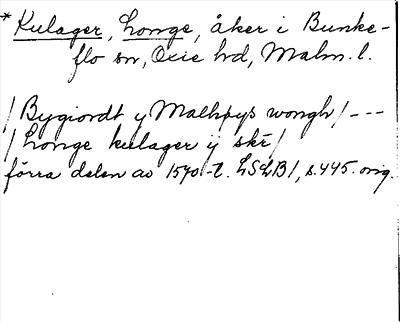 * Kulager, Longe, åker i Bunke-
flo sn, Oxie hd, Malm. l.
/ Bygiordt y Malhpys wongh / ---
/ Longe kulager ij skr /
förra delen av 1570-t. LSLB 1, s. 445. orig.